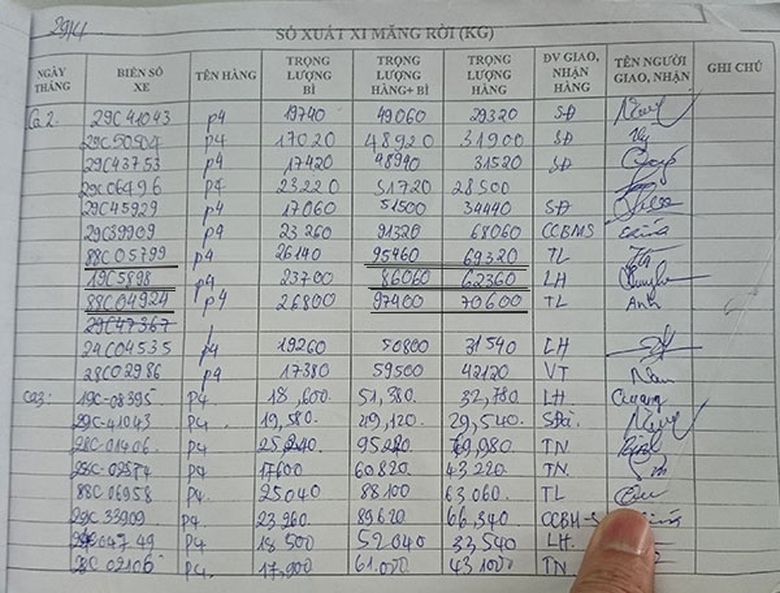 29/4
SỔ XUẤT XI MĂNG RỜI (KG)
NGÀY THÁNG BIỂN SỐ XE TÊN HÀNG TRỌNG LƯỢNG BÌ TRỌNG LƯỢNG HÀNG+ BÌ TRỌNG LƯỢNG HÀNG ĐV GIAO, NHẬN HÀNG TÊN NGƯỜI GIAO, NHẬN GHI CHÚ
Ca 2. 29C41043 p4 19740 49060 29320 SĐ
29C50504 p4 17020 48920 31900 SĐ
29C43753 p4 17420 48940 31520 SĐ
29C06496 p4 23220 51720 28500
29C45929 p4 17060 51500 34440 SĐ
29C39909 p4 23260 91320 68060 CCBMS
88C05799 p4 26140 95460 69320 TL
19C5898 p4 23700 86060 62360 LH
88C04924 p4 26800 97400 70600 TL Anh
29C47367
24C04535 p4 19260 50800 31540 LH
28C02986 p4 17380 59500 42120 VT
Ca3: 19C-08395 p4 18,600. 51,380. 32,780 LH
29C-41043 p4 19,580. 49,120. 29,540. SĐà.
28C-01406. p4 95220 TN
28C-02574 p4 17600 60820 43220 TN.
88C 06958 p4. 25040 88100 63060. TL
29C 33909 p4 23,260. 89,620 66,340
04749 p4 18 500 52040 33540 LH.
28C 02106 p4. 17,900 61.000 43100 TN